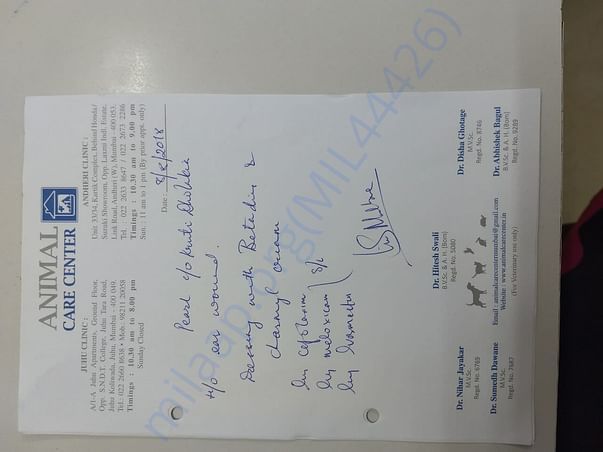 ANIMAL
CARE CENTER
JUHU CLINIC :
A/1-A Juhu Apartments, Ground Floor,
Opp. S.N.D.T. College, Juhu Tara Road,
Juhu Koliwada, Juhu, Mumbai - 400 049.
Tel.: 022 2660 8638 • Mob.: 98211 20558
Timings : 10.30 am to 8.00 pm
Sunday Closed
ANDHERI CLINIC :
Unit 33/34, Kartik Complex, Behind Honda/
Suzuki Showroom, Opp. Laxmi Indl. Estate,
Link Road, Andheri (W), Mumbai - 400 053.
Tel. : 022 2633 8647 / 022 2673 2286
Timings : 10.30 am to 9.00 pm
Sun.: 11 am to 1 pm (By prior apps. only)
Date : 8/8/2018
Pearl c/o Kruti
H/o ear wound.
Dressing with Betadine &
cream
Inj
Inj meloxicam
Inj Ivermectin
S/c
Dr. Nihar Jayakar
M.V.Sc.
Regd. No. 6769
Dr. Sumedh Dawane
M.V.Sc.
Regd. No. 7587
Dr. Hitesh Swali
B.V.Sc. & A. H. (Bom)
Regd. No. 5080
Dr. Disha Ghotage
M.V.Sc.
Regd. No. 8746
Dr. Abhishek Bagul
B.V.Sc & A. H. (Bom)
Regd. No. 9289
Email : animalcarecentermumbai@gmail.com
Website : www.animalcarecenter.in
(For Veterinary use only)
milaap.org(MIL44426)